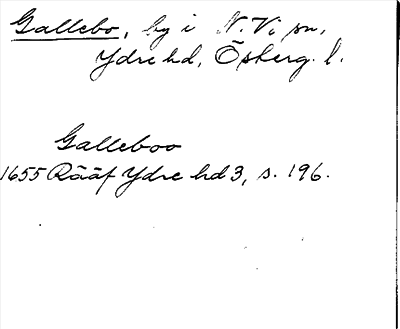 Gallebo, by i N. Vi sn,
Ydre hd, Österg. l.
Galleboo
1655 Rääf Ydre hd 3, s. 196.